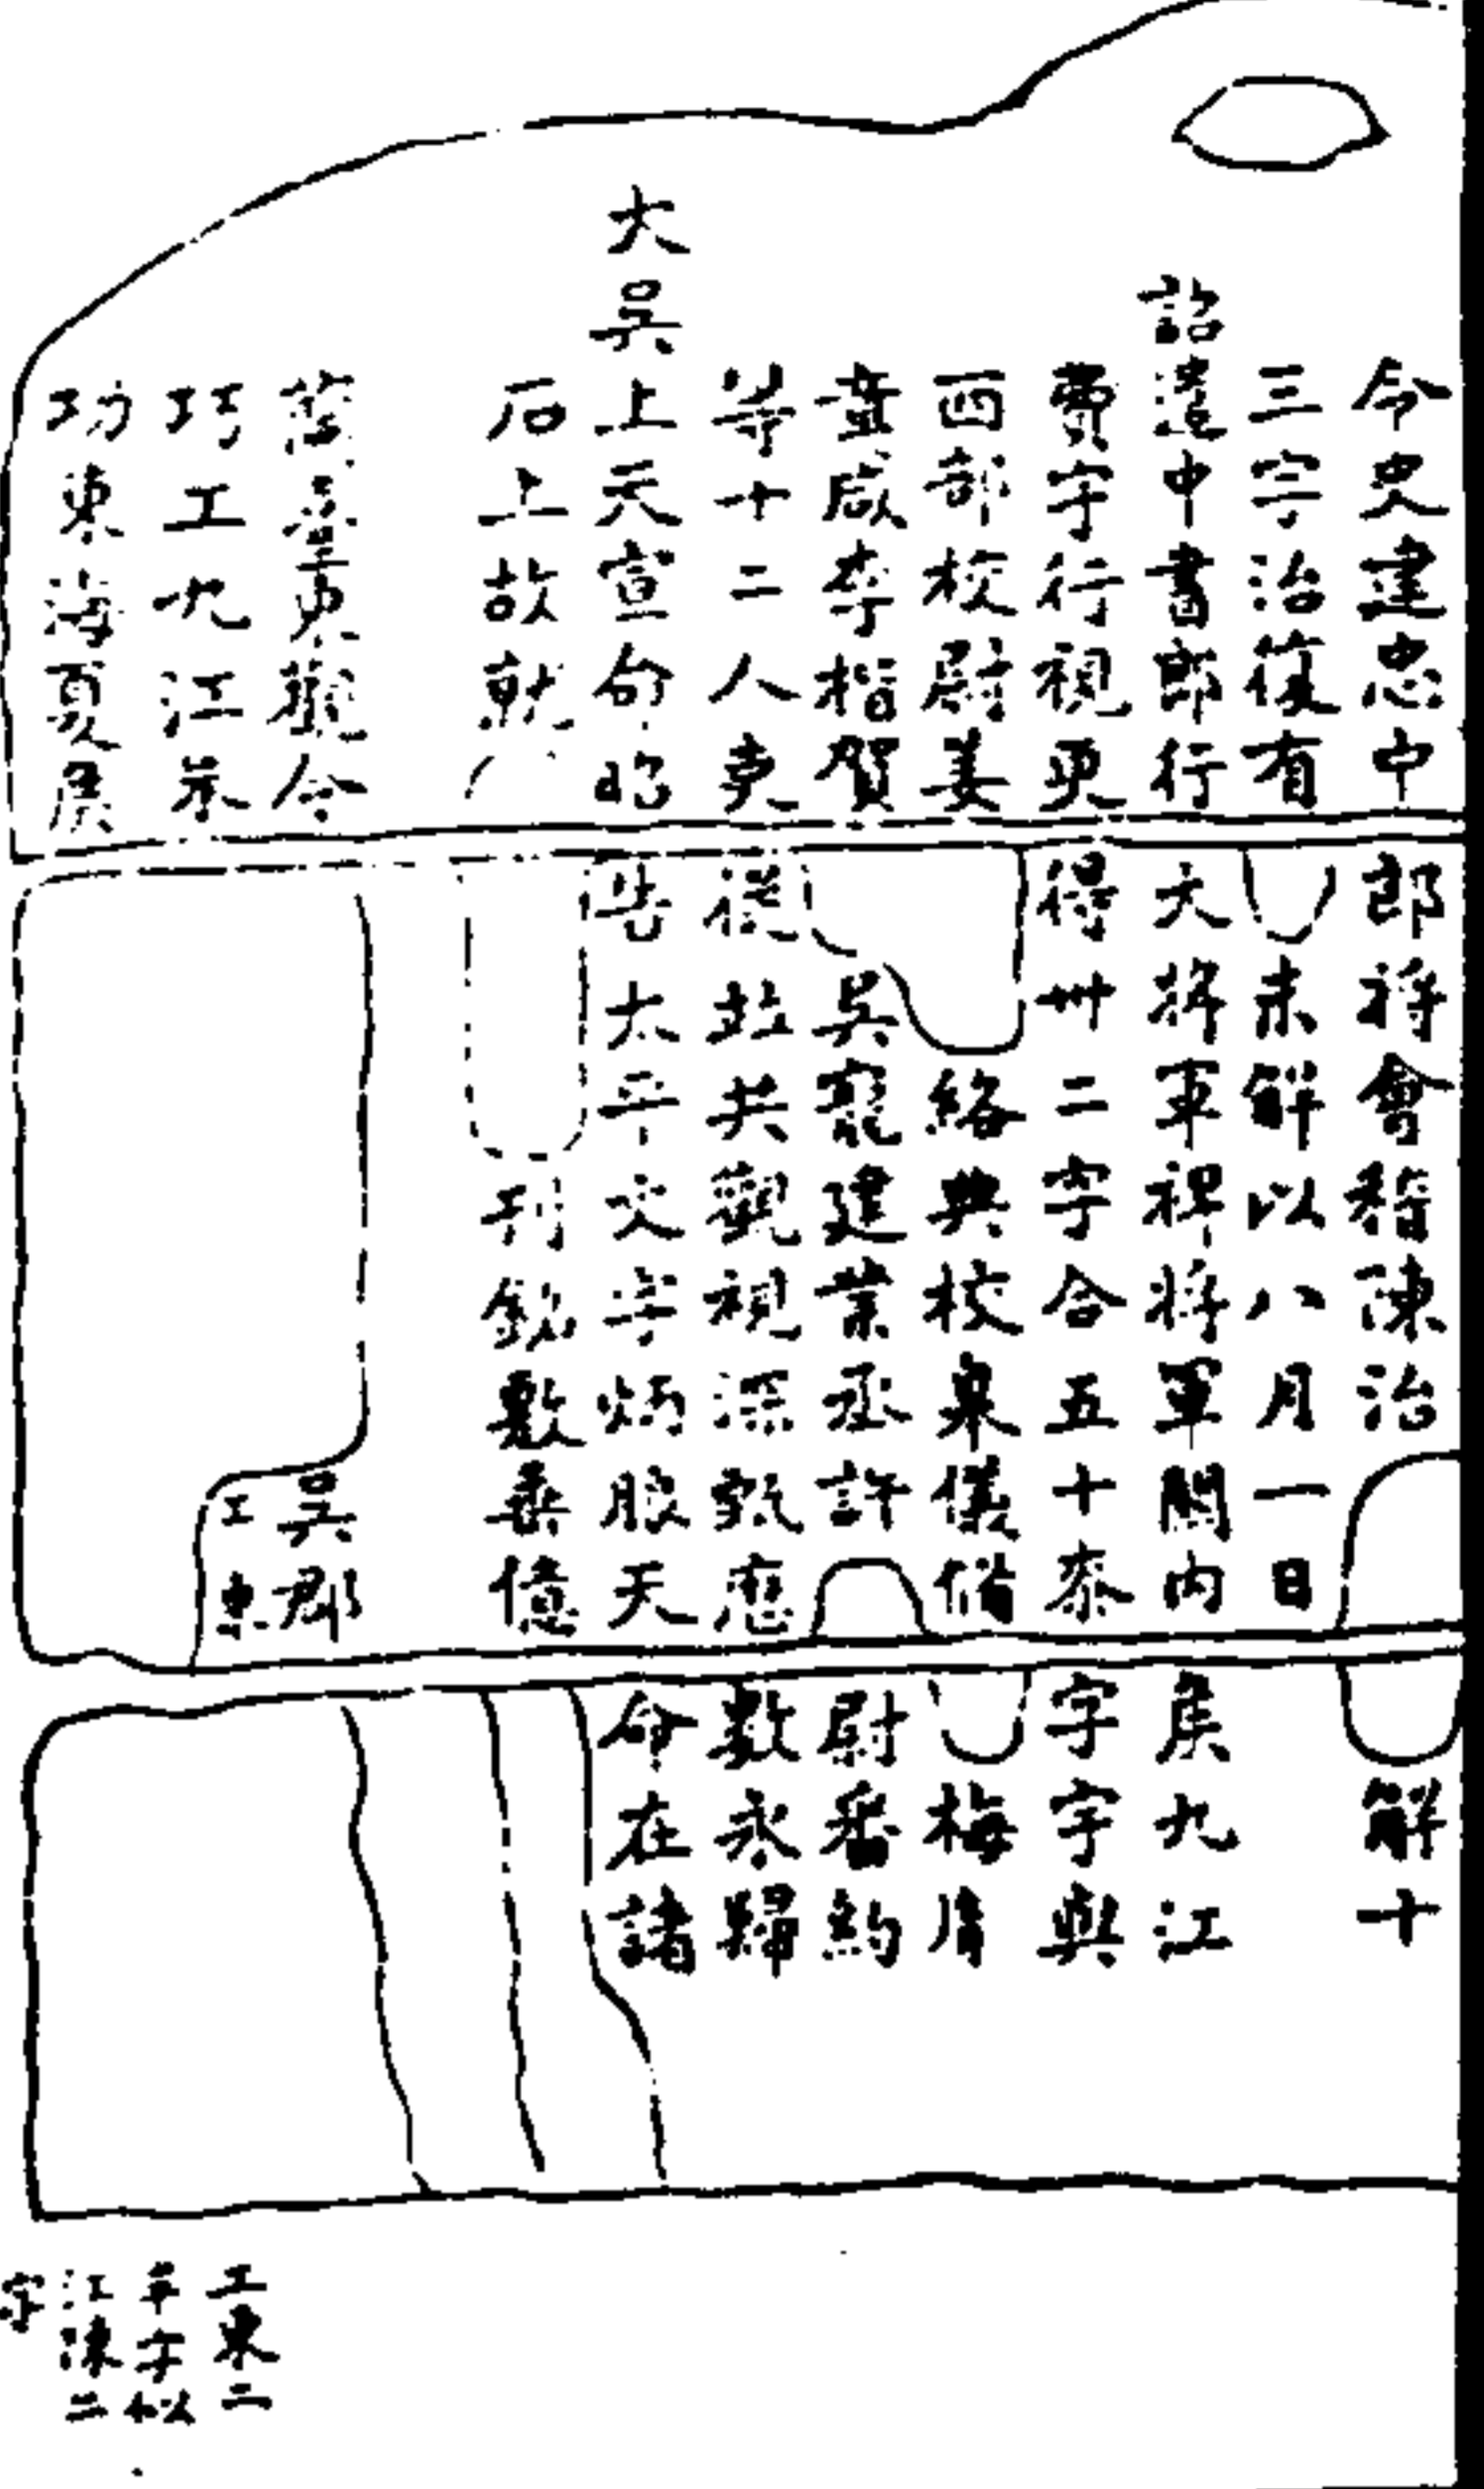 令史建忠中郎將會稽陳治解十
三字治復有未解以八月一日
詔遣中書郎行大將軍裨將軍關內侯九江
費宇行視更得卅二字合五十泰字宇與
西部校尉姜絡典校皋儀備梅胤
章咸李楷賀吳寵建業丞許尉番約
等十二人吏從並共觀視深甄歷數永歸
大吳上天宣命昭告大平文字炳朖天命在諸
石上故就刊銘敷垂億
臺東觀令吳郡
巧工九江朱工東
功東海夏侯
工東二
平字似
江陳二
字